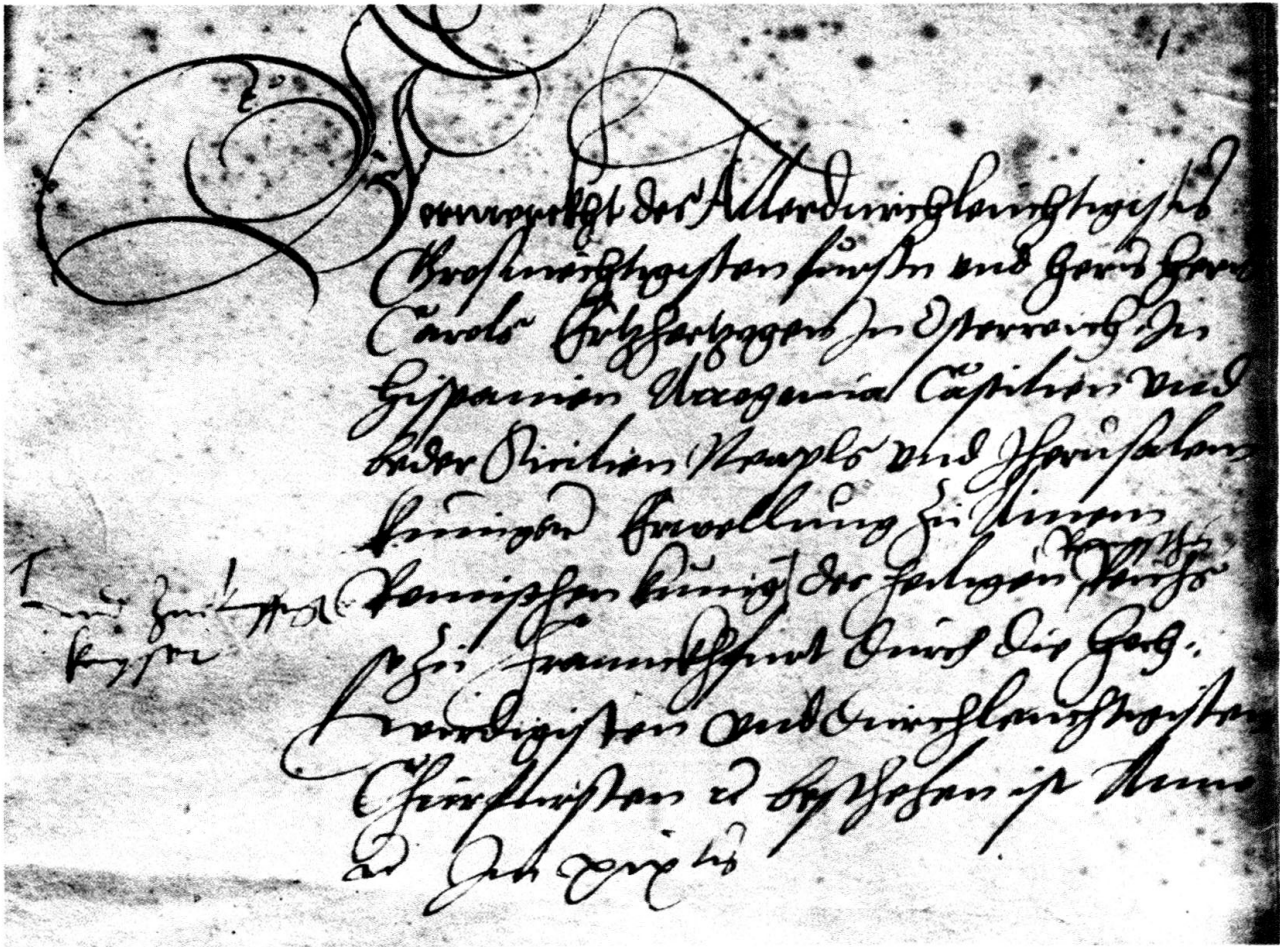 1
Vermerckht des Allerdurchleuchtigists
Grosmechtigisten fursten vnd Herrn Herrn
Carols Ertzhertzogen In Osterreich In
Hispanien Arragonia Castilien Vnd
beder Sicilien Neapls vnd Jherusalem
kunigen Erwellung Zu Ainem
Romischen kunig der heiligen Reichs
vnd
keyser
so zu Franckhfurt durch die Hoch:
wirdigisten vnd durchleuchtigisten
Churfursten beschehen ist Anno
Im xix tis